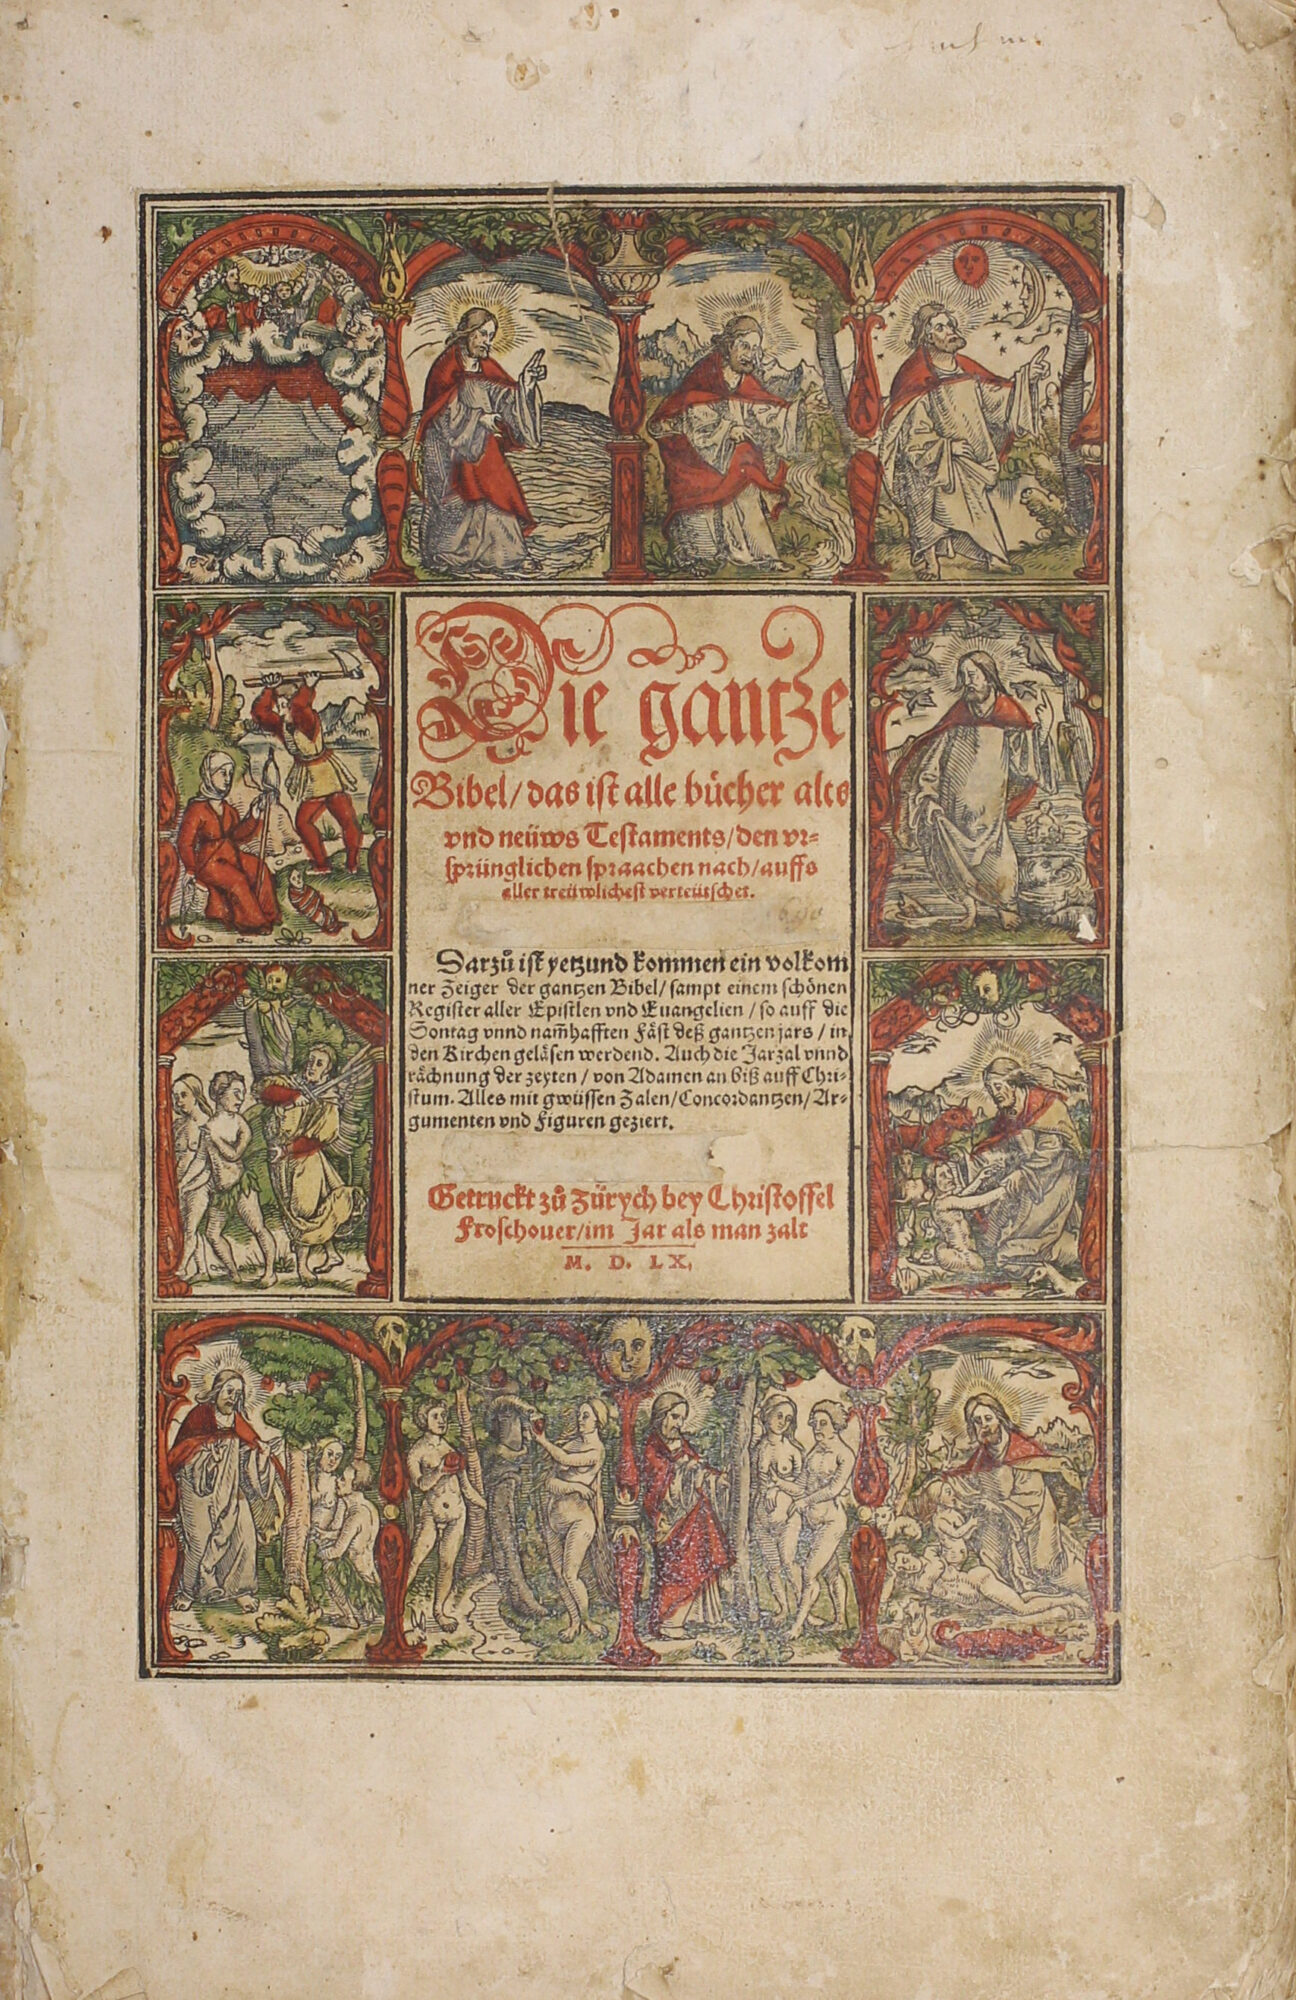 Die gantze
Bibel/das ist alle bücher alts
vnd neüws Testaments/den vr-
sprünglichen spraachen nach/auffs
aller treüwlichest verteütschet.
Darzů ist yetzund kommen ein volkom
ner Zeiger der gantzen Bibel/sampt einem schönen
Register aller Epistlen vnd Euangelien/so auff die
Sontag vnnd nam̃hafften Fäst deß gantzen jars/in
den Kirchen geläsen werdend. Auch die Jarzal vnnd
rächnung der zeyten/von Adamen an biß auff Chri-
stum. Alles mit gwüssen Zalen/Concordantzen/Ar-
gumenten vnd Figuren geziert.
Getruckt zů Zürych bey Christoffel
Froschouer/im Jar als man zalt
M. D. LX.